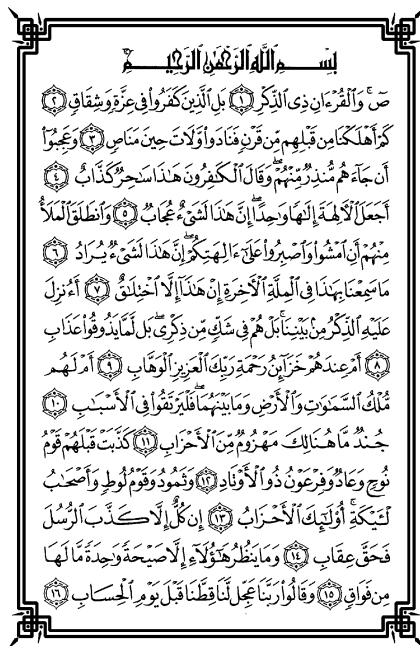 بِسْمِ ٱللَّهِ ٱلرَّحْمَٰنِ ٱلرَّحِيمِ
صٓ ۚ وَٱلْقُرْءَانِ ذِى ٱلذِّكْرِ ١ بَلِ ٱلَّذِينَ كَفَرُوا۟ فِى عِزَّةٍ وَشِقَاقٍ ٢
كَمْ أَهْلَكْنَا مِن قَبْلِهِم مِّن قَرْنٍ فَنَادَوا۟ وَّلَاتَ حِينَ مَنَاصٍ ٣ وَعَجِبُوٓا۟
أَن جَآءَهُم مُّنذِرٌ مِّنْهُمْ ۖ وَقَالَ ٱلْكَٰفِرُونَ هَٰذَا سَٰحِرٌ كَذَّابٌ ٤
أَجَعَلَ ٱلْءَالِهَةَ إِلَٰهًا وَٰحِدًا ۖ إِنَّ هَٰذَا لَشَىْءٌ عُجَابٌ ٥ وَٱنطَلَقَ ٱلْمَلَأُ
مِنْهُمْ أَنِ ٱمْشُوا۟ وَٱصْبِرُوا۟ عَلَىٰٓ ءَالِهَتِكُمْ ۖ إِنَّ هَٰذَا لَشَىْءٌ يُرَادُ ٦
مَا سَمِعْنَا بِهَٰذَا فِى ٱلْمِلَّةِ ٱلْءَاخِرَةِ إِنْ هَٰذَآ إِلَّا ٱخْتِلَٰقٌ ٧ أَءُنزِلَ
عَلَيْهِ ٱلذِّكْرُ مِنۢ بَيْنِنَا ۚ بَلْ هُمْ فِى شَكٍّ مِّن ذِكْرِى ۖ بَل لَّمَّا يَذُوقُوا۟ عَذَابِ
٨ أَمْ عِندَهُمْ خَزَآئِنُ رَحْمَةِ رَبِّكَ ٱلْعَزِيزِ ٱلْوَهَّابِ ٩ أَمْ لَهُم
مُّلْكُ ٱلسَّمَٰوَٰتِ وَٱلْأَرْضِ وَمَا بَيْنَهُمَا ۖ فَلْيَرْتَقُوا۟ فِى ٱلْأَسْبَٰبِ ١٠
جُندٌ مَّا هُنَالِكَ مَهْزُومٌ مِّنَ ٱلْأَحْزَابِ ١١ كَذَّبَتْ قَبْلَهُمْ قَوْمُ
نُوحٍ وَعَادٌ وَفِرْعَوْنُ ذُو ٱلْأَوْتَادِ ١٢ وَثَمُودُ وَقَوْمُ لُوطٍ وَأَصْحَٰبُ
لْـَٔيْكَةِ ۚ أُو۟لَٰٓئِكَ ٱلْأَحْزَابُ ١٣ إِن كُلٌّ إِلَّا كَذَّبَ ٱلرُّسُلَ
فَحَقَّ عِقَابِ ١٤ وَمَا يَنظُرُ هَٰٓؤُلَآءِ إِلَّا صَيْحَةً وَٰحِدَةً مَّا لَهَا
مِن فَوَاقٍ ١٥ وَقَالُوا۟ رَبَّنَا عَجِّل لَّنَا قِطَّنَا قَبْلَ يَوْمِ ٱلْحِسَابِ ١٦